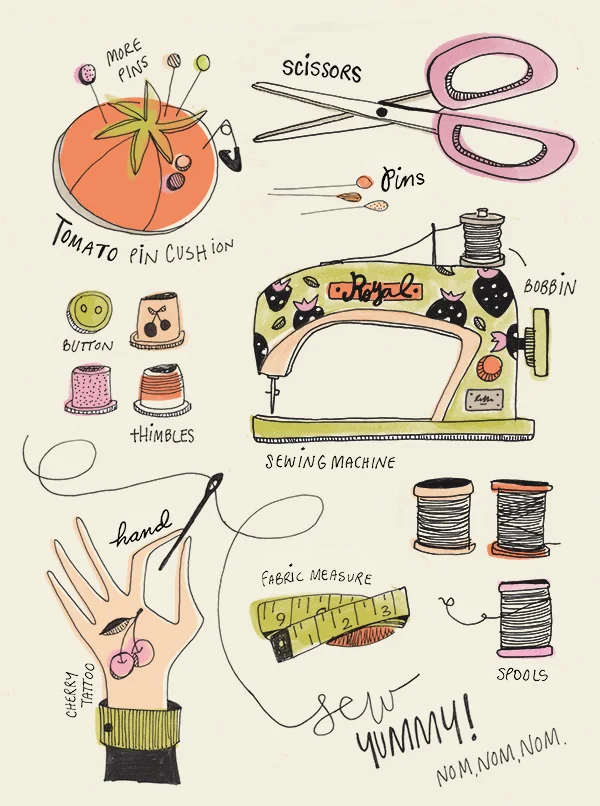 MORE
PINS
SCISSORS
Pins
TOMATO PIN CUSHION
BOBBIN
Royal
BUTTON
THIMBLES
SEWING MACHINE
hand
FABRIC MEASURE
9
1 2 3
CHERRY
TATTOO
SPOOLS
sew
YUMMY!
NOM, NOM, NOM.